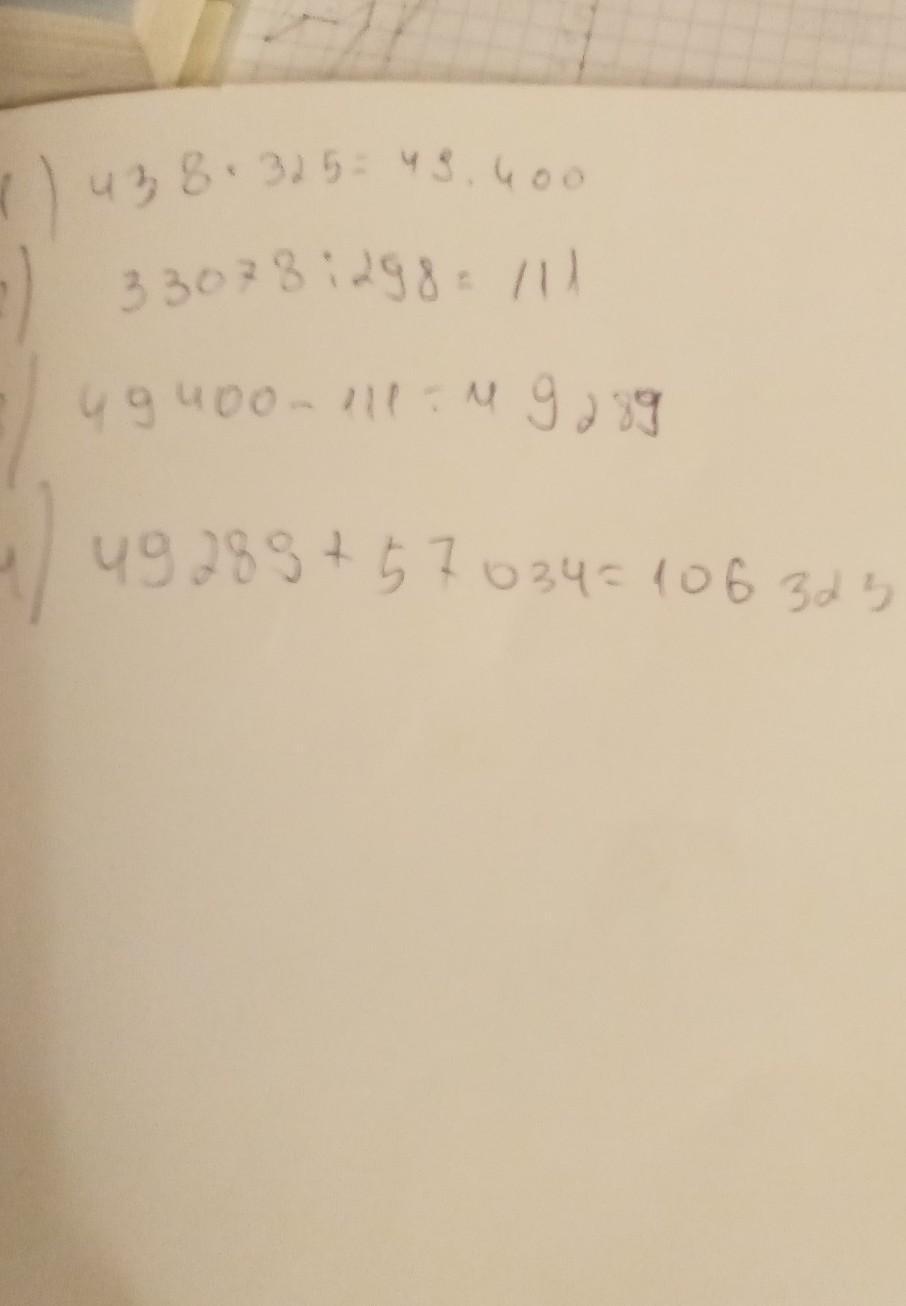 1) 438 · 325 = 49.400
2) 33078 : 298 = 111
3) 49400 - 111 = 49289
4) 49289 + 57034 = 106 323